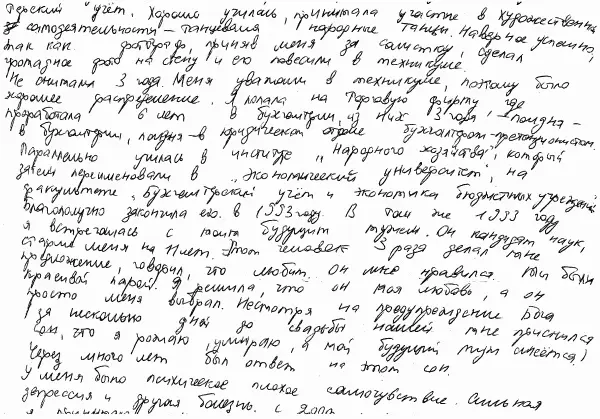 терский учёт. Хорошо училась, принимала участие в художественной
самодеятельности – танцевала народные танцы. Наверное успешно,
так как фотограф, приняв меня за солистку, сделал
громадное фото на стену и его повесили в техникуме.
Не снимали 3 года. Меня уважали в техникуме, поэтому было
хорошее распределение. Я попала на торговую фирму, где
проработала 6 лет в бухгалтерии, из них 3 года
в бухгалтерии, позднее – в юридическом отделе бухгалтером-претензионистом.
Параллельно училась в институте „Народного хозяйства", который
затем переименовали в „Экономический университет", на
факультете „Бухгалтерский учёт и экономика бюджетных учреждений
Благополучно закончила его в 1993 году. В том же 1993 году
я встретилась с моим будущим мужем. Он кандидат наук,
старше меня на 11 лет. Этот человек 3 раза делал мне
предложение, говорил, что любит. Он мне нравился. Мы были
красивой парой. Я решила, что он моя любовь, а он
просто меня выбрал. Несмотря на предупреждение Бога
(за несколько дней до свадьбы нашей мне приснился
сон, что я рожаю, умираю, а мой будущий муж смеётся)
Через много лет был ответ на этот сон.
У меня было психическое плохое самочувствие. Сильная
депрессия и другая болезнь. С